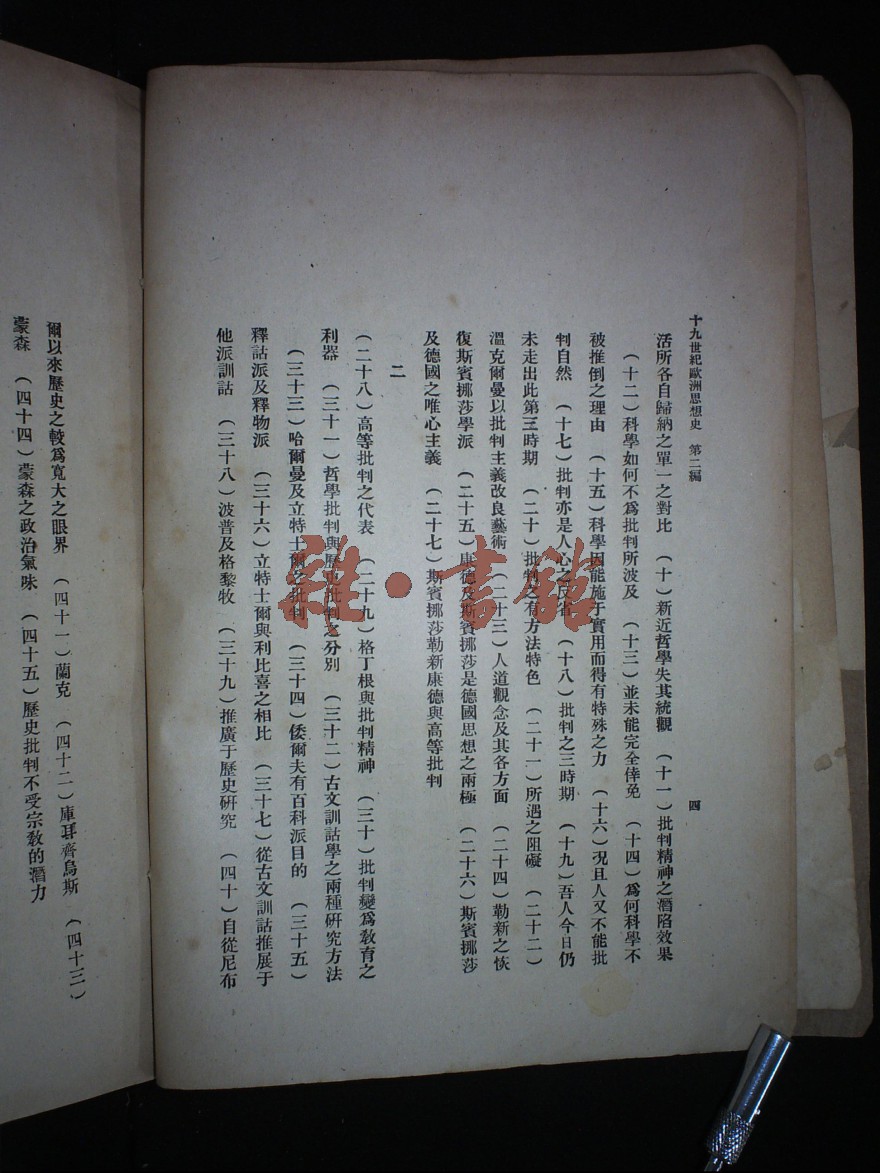 十九世紀歐洲思想史 第二編 四
活所各自歸納之單一之對比 (十)新近哲學失其統觀 (十一)批判精神之潛陷效果
(十二)科學如何不爲批判所波及 (十三)並未能完全倖免 (十四)爲何科學不
被推倒之理由 (十五)科學因能施于實用而得有特殊之力 (十六)況且人又不能批
判自然 (十七)批判亦是人心之反省 (十八)批判之三時期 (十九)吾人今日仍
未走出此第三時期 (二十)批判之有方法特色 (二十一)所遇之阻礙 (二十二)
溫克爾曼以批判主義改良藝術 (二十三)人道觀念及其各方面 (二十四)勒新之恢
復斯賓挪莎學派 (二十五)康德及斯賓挪莎是德國思想之兩極 (二十六)斯賓挪莎
及德國之唯心主義 (二十七)斯賓挪莎勒新康德與高等批判
二
(二十八)高等批判之代表 (二十九)格丁根與批判精神 (三十)批判變爲敎育之
利器 (三十一)哲學批判與歷史批判之分別 (三十二)古文訓詁學之兩種研究方法
(三十三)哈爾曼及立特士爾之批判 (三十四)倭爾夫有百科派目的 (三十五)
釋詁派及釋物派 (三十六)立特士爾與利比喜之相比 (三十七)從古文訓詁推展于
他派訓詁 (三十八)波普及格黎牧 (三十九)推廣于歷史研究 (四十)自從尼布
爾以來歷史之較爲寬大之眼界 (四十一)蘭克 (四十二)庫耳齊烏斯 (四十三)
蒙森 (四十四)蒙森之政治氣味 (四十五)歷史批判不受宗敎的潛力
雜·書館